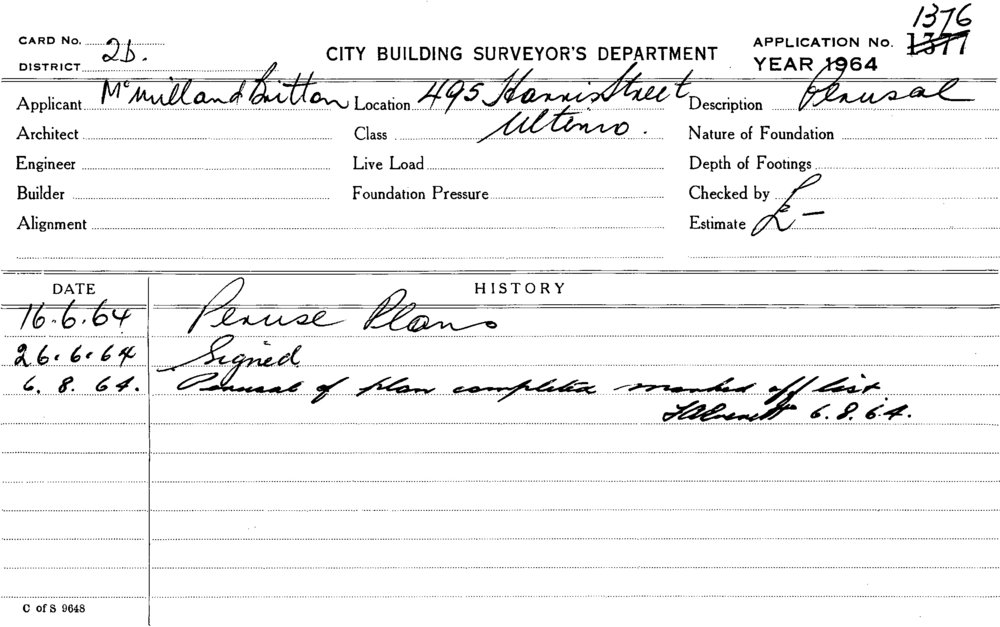 1376
CARD No. 2b.
CITY BUILDING SURVEYOR'S DEPARTMENT
APPLICATION No. 1377
DISTRICT
YEAR 1964
Applicant McMilland Britton Location 495 Harris Street Description Perusal
Architect Class Ultimo. Nature of Foundation
Engineer Live Load Depth of Footings
Builder Foundation Pressure Checked by
Alignment Estimate £ —
DATE HISTORY
16.6.64 Peruse Plans
26.6.64 Signed
6.8.64. Perusal of plan completed marked off list.
6.8.64.
C of S 9648